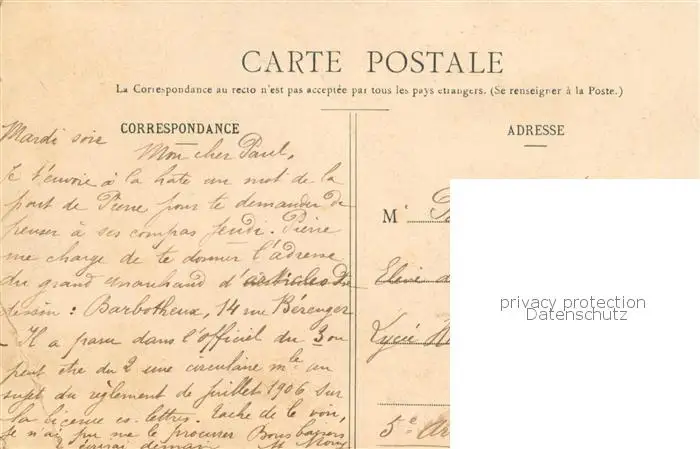 CARTE POSTALE
La Correspondance au recto n'est pas acceptée par tous les pays étrangers. (Se renseigner à la Poste.)
CORRESPONDANCE
Mardi soir
Mon cher Paul,
Je t'envoie à la hate un mot de la
part de Pierre pour te demander de
penser à ses compas jeudi. Pierre
me charge de te donner l'adresse
du grand marchand d'articles de
dessin : Barbotheux, 14 rue Bérenger
- Il a paru dans l'officiel du 3 ou
peut etre du 2 une circulaire mle au
sujet du règlement de juillet 1906 sur
la licence es-lettres. Tache de le voir,
Je n'ai pu me le procurer Bons baisers
ADRESSE
M
Elève
Lycée
5e Ar
privacy protection
Datenschutz